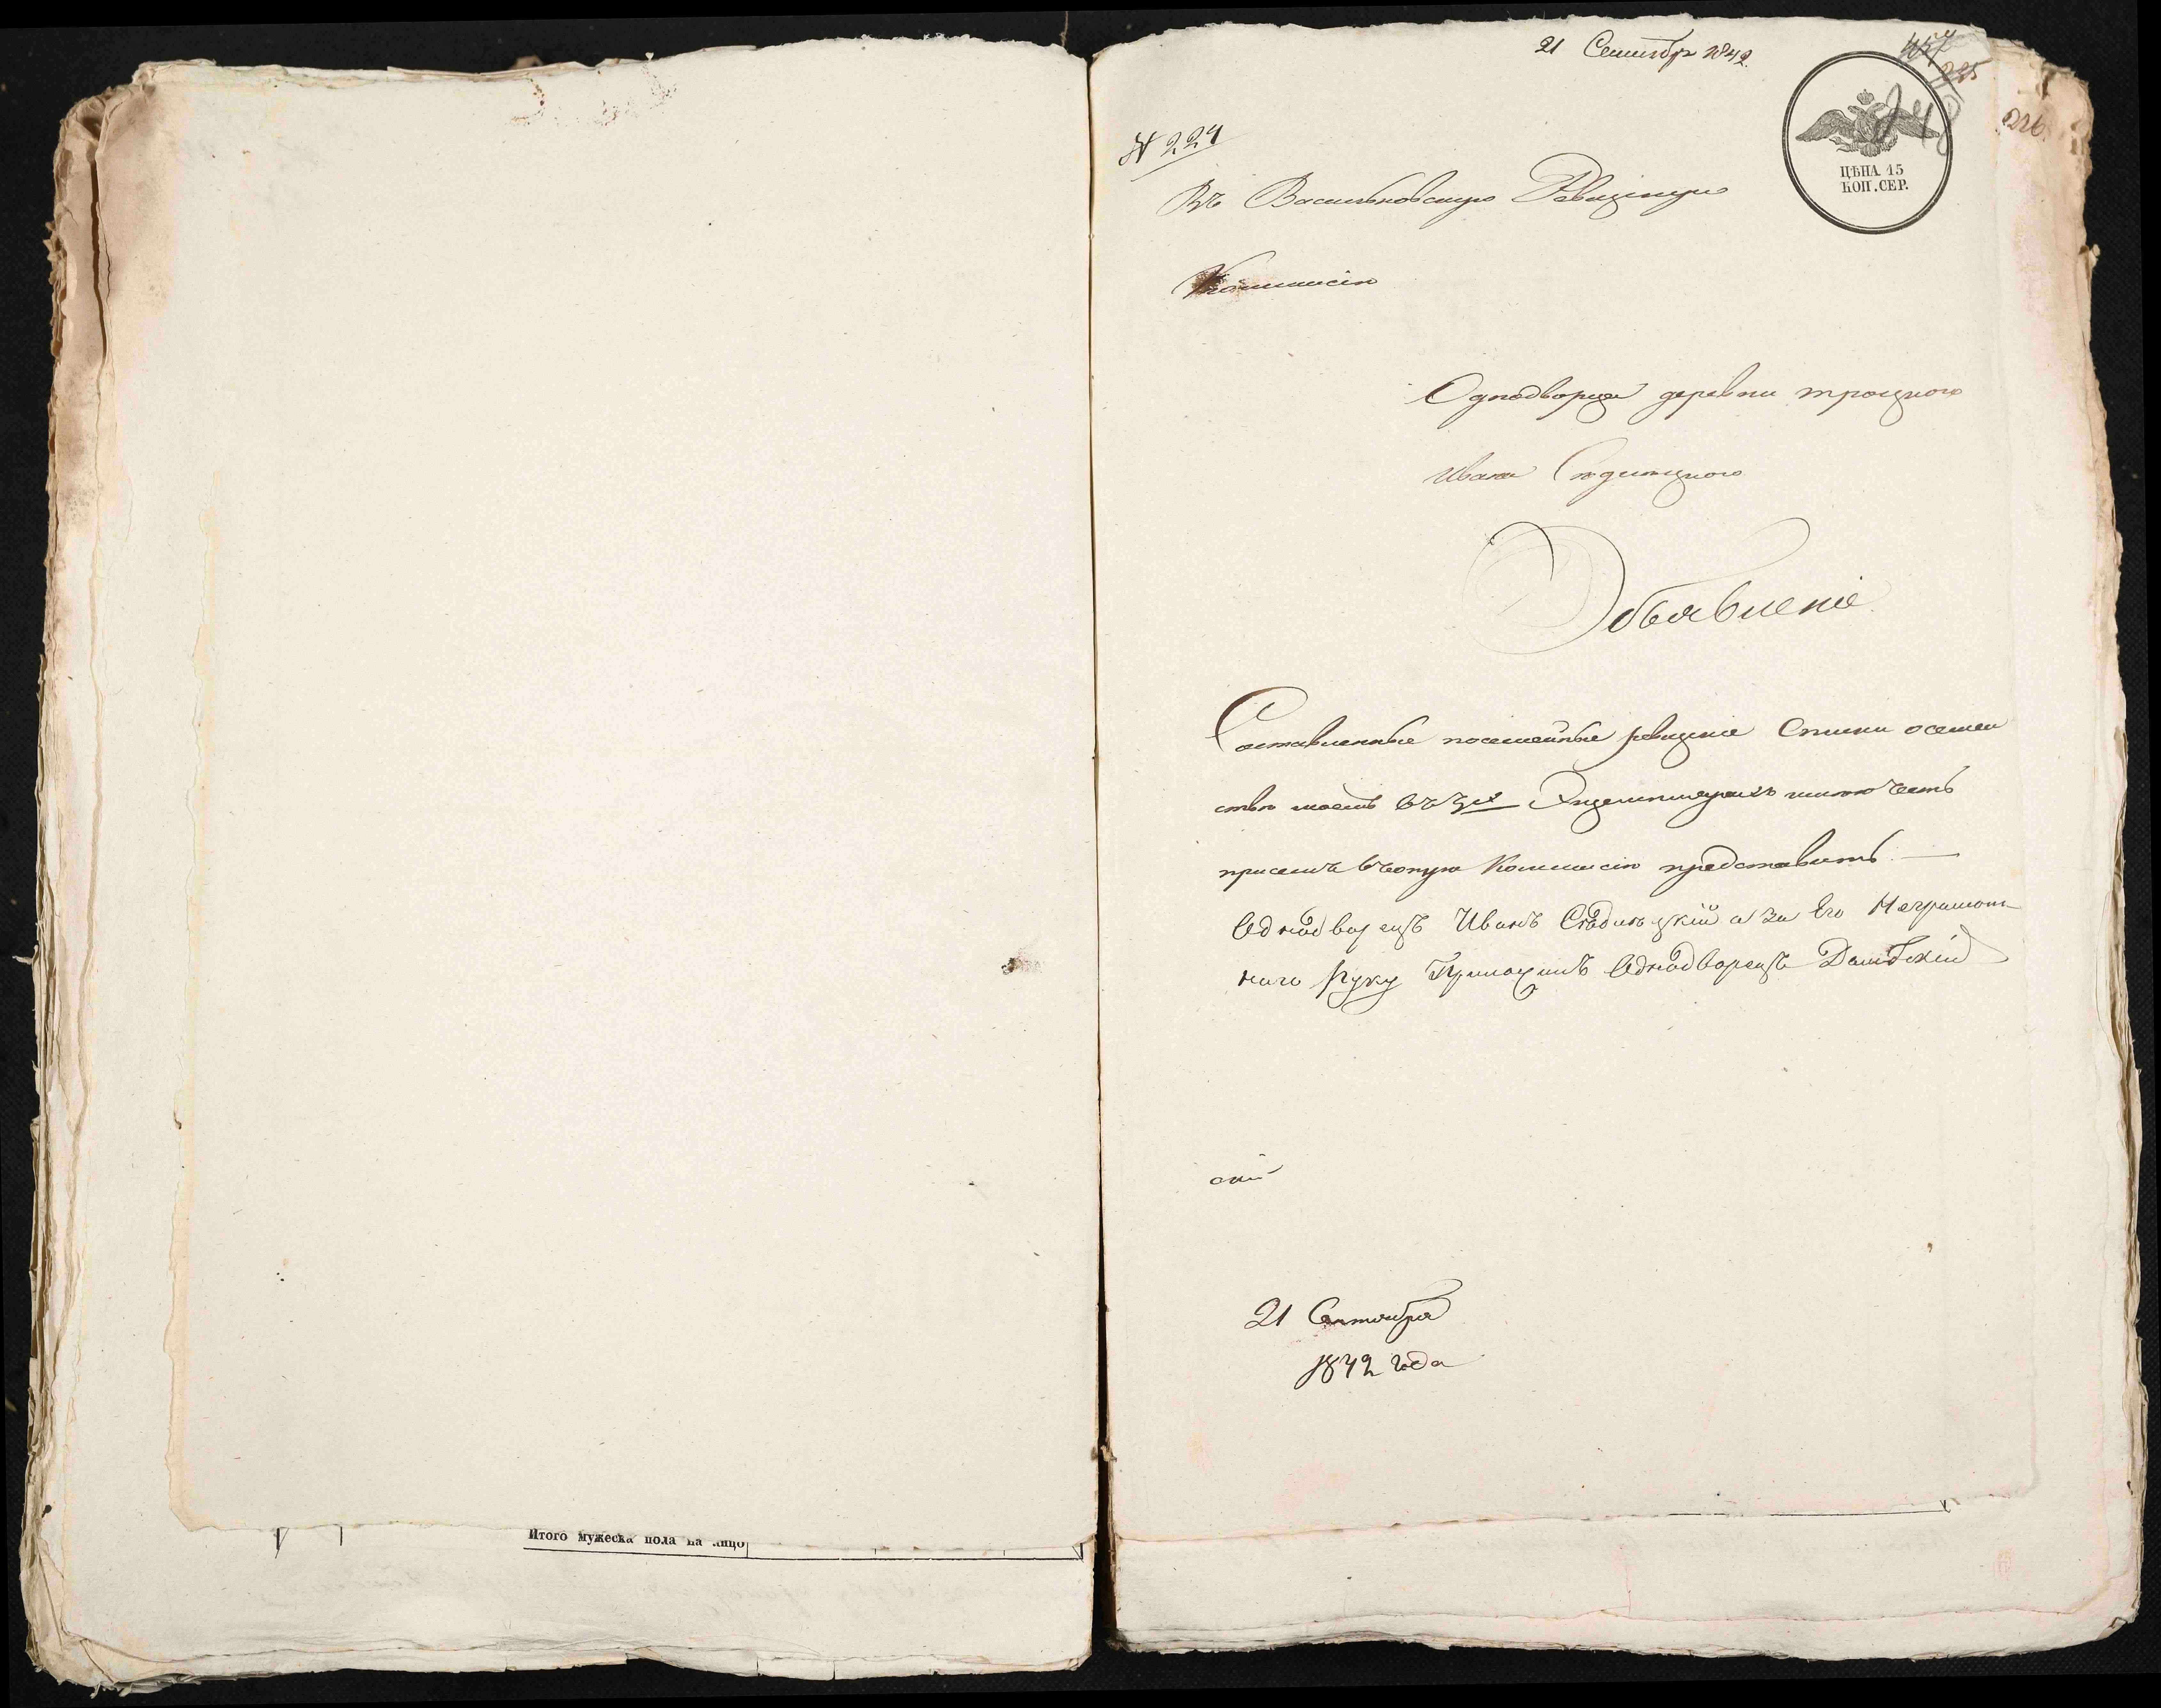 21 Сентября 1842.
457
225
226.
ЦѢНА 15
КОП. СЕР.
№ 224
Въ Васильковскую Ревизскую
Коммисію
Однодворца деревни троцкого
Ивана
Объявленіе
Составленные посемейные ревизскіе Списки о семей
ствѣ моемъ въ 3х Экземплярахъ имѣю честь
присемъ въ оную Коммисію представить. —
Однодворецъ Иванъ а за Его Неграмот
наго Руку Приложилъ Однодворецъ
21 Сентября
1842 года
Итого мужеска пола на лицо